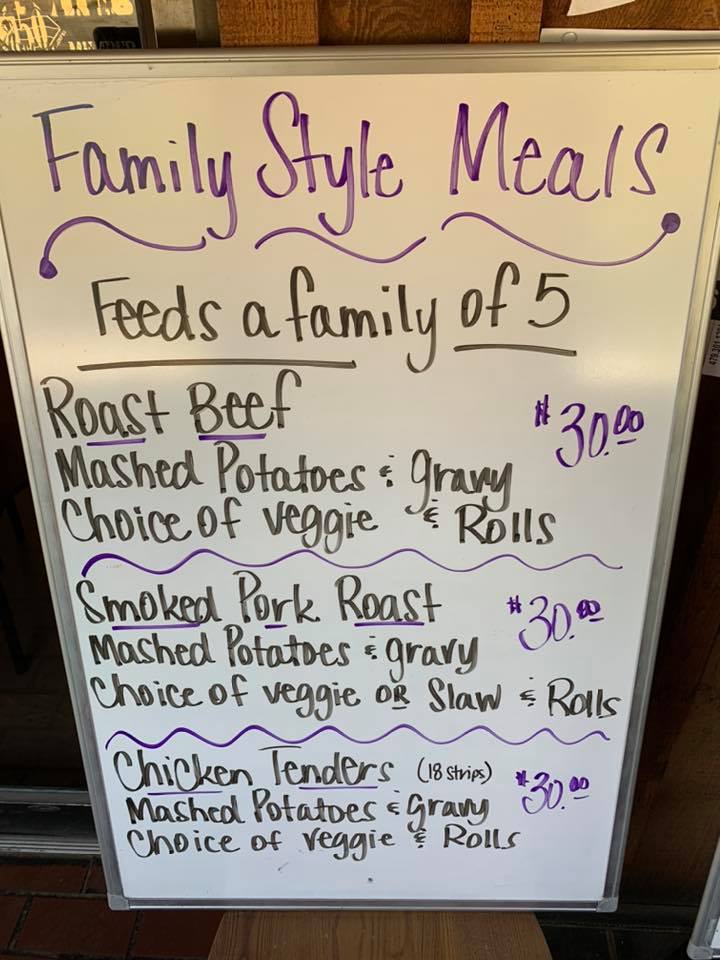 Family Style Meals
Feeds a family of 5
Roast Beef $30.00
Mashed Potatoes & gravy
Choice of veggie & Rolls
Smoked Pork Roast $30.00
Mashed Potatoes & gravy
Choice of veggie OR Slaw & Rolls
Chicken Tenders (18 strips) $30.00
Mashed Potatoes & Gravy
Choice of veggie & Rolls